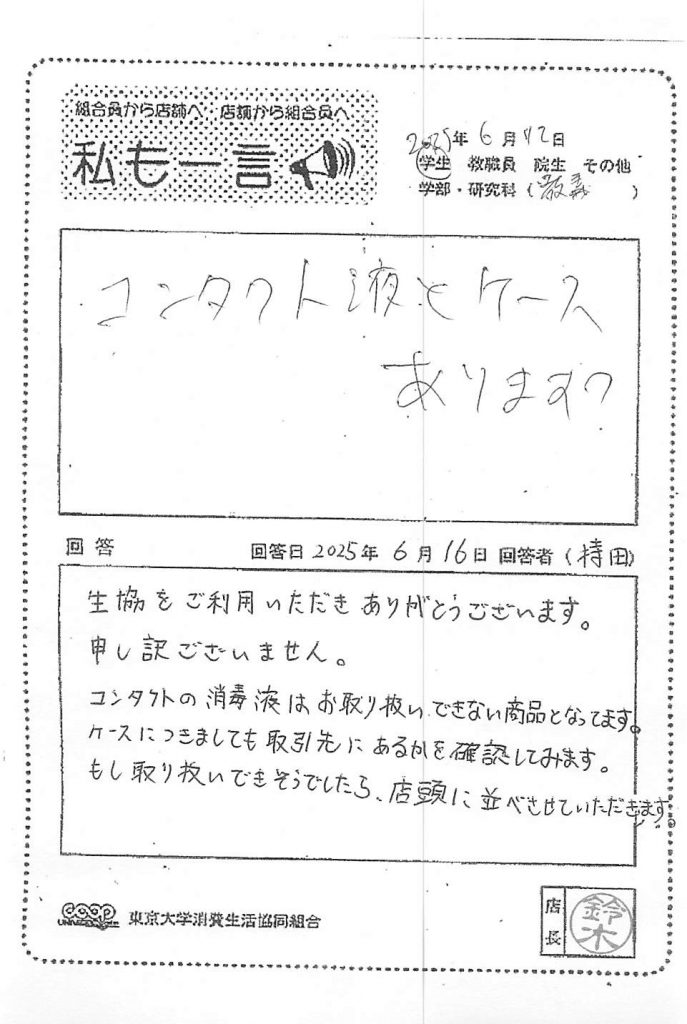 組合員から店舗へ 店舗から組合員へ
私も一言
2025年 6月12日
学生 教職員 院生 その他
学部・研究科（教養）
コンタクト液とケース
あります?
回答 回答日 2025年 6月16日 回答者（持田）
生協をご利用いただきありがとうございます。
申し訳ございません。
コンタクトの消毒液はお取り扱いできない商品となってます。
ケースにつきましても取引先にあるかを確認してみます。
もし取り扱いできそうでしたら、店頭に並べさせていただきます。
coop 東京大学消費生活協同組合
店長 鈴木